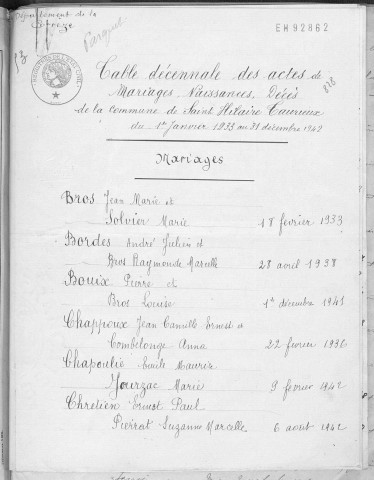 Département de la
Corrèze
EH92862
Table décennale des actes de
Mariages, Naissances, Décès
de la commune de Saint Hilaire Taurieux
du 1er Janvier 1933 au 31 décembre 1942
Mariages
Bros Jean Marie et
Solvier Marie 18 février 1933
Bordes André Julien et
Bros Raymonde Marcelle 28 avril 1938
Bouix Pierre et
Bros Louise 1er décembre 1941
Chappoux Jean Camille Ernest et
Combelonge Anna 22 février 1936
Chapoulie Emile Maurice
Jourzac Marie 9 février 1942
Chrétien Ernest Paul
Pierrat Suzanne Marcelle 6 août 1942